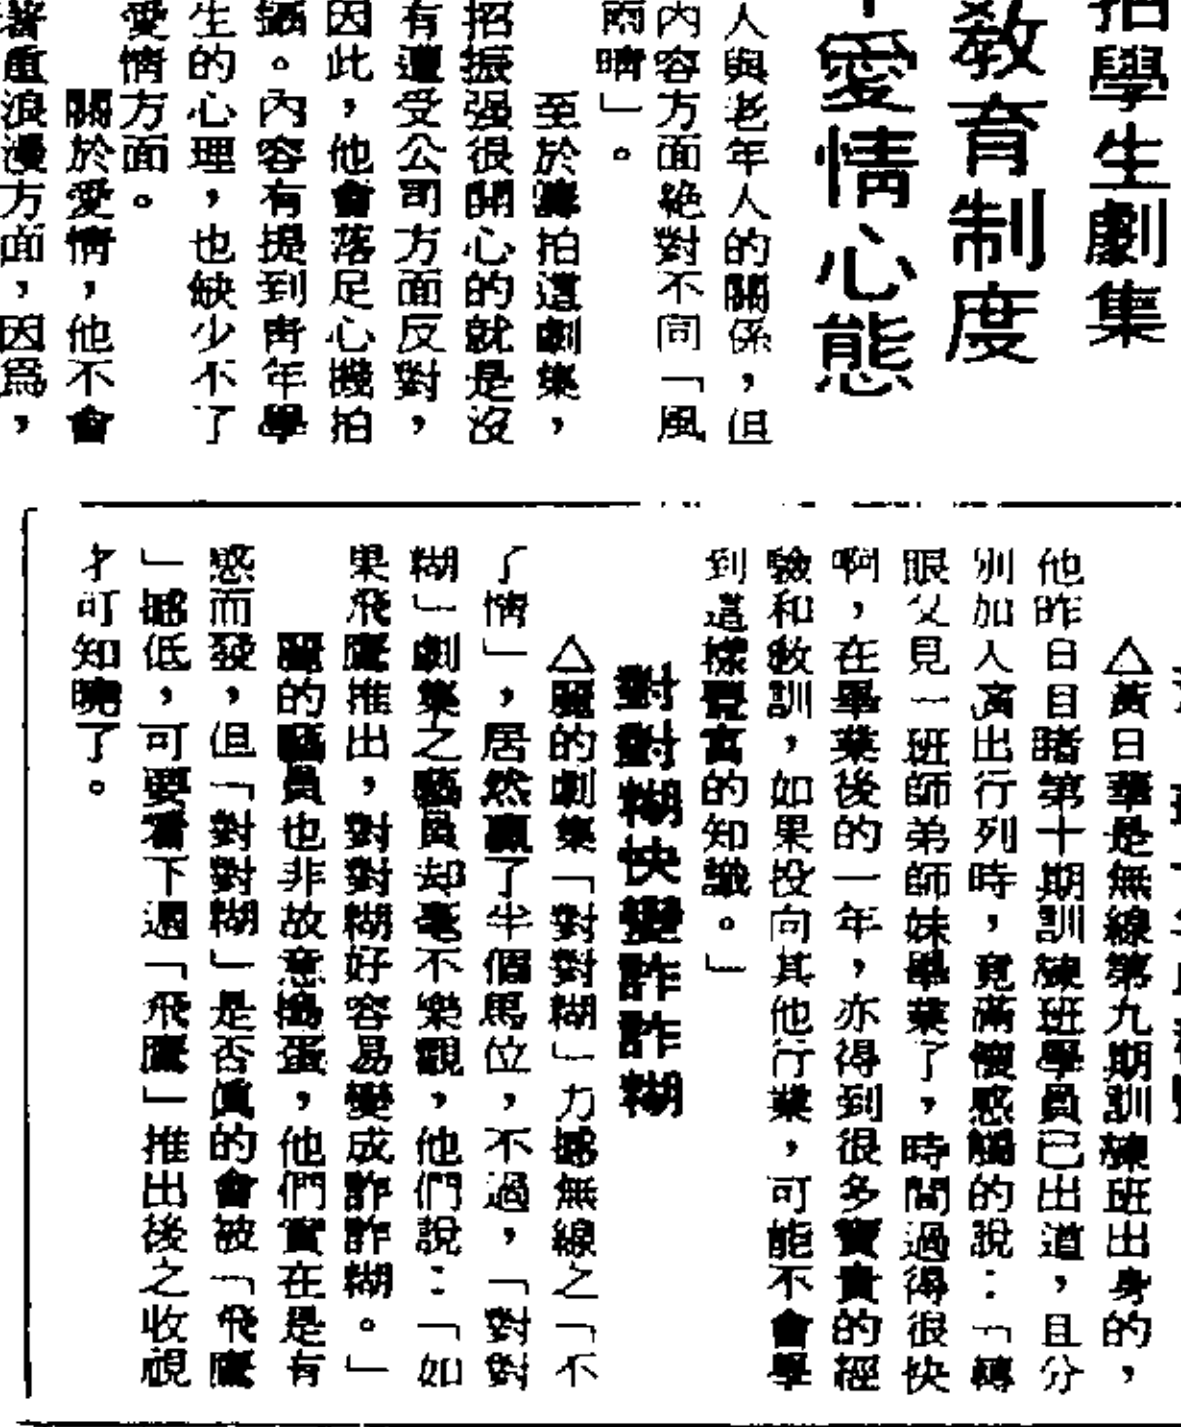 拍學生劇集
教育制度
愛情心態
人與老年人的關係，但
內容方面絶對不同「風
雨晴」。
至於籌拍這劇集，
招振强很開心的就是沒
有遭受公司方面反對，
因此，他會落足心機拍
攝。內容有提到靑年學
生的心理，也缺少不了
愛情方面。
關於愛情，他不會
着重浪漫方面，因爲，
△黃日華是無線第九期訓練班出身的，
他昨日目睹第十期訓練班學員已出道，且分
別加入演出行列時，竟滿懷感觸的說：「轉
眼又見一班師弟師妹畢業了，時間過得很快
啊，在畢業後的一年，亦得到很多寶貴的經
驗和敎訓，如果投向其他行業，可能不會學
到這樣豐富的知識。」
對對糊快變詐詐糊
△麗的劇集「對對糊」力撼無線之「不
了情」，居然贏了半個馬位，不過，「對對
糊」劇集之藝員却毫不樂觀，他們說：「如
果飛鷹推出，對對糊好容易變成詐詐糊。」
麗的藝員也非故意搗蛋，他們實在是有
感而發，但「對對糊」是否眞的會被「飛鷹
」撼低，可要看下週「飛鷹」推出後之收視
才可知曉了。